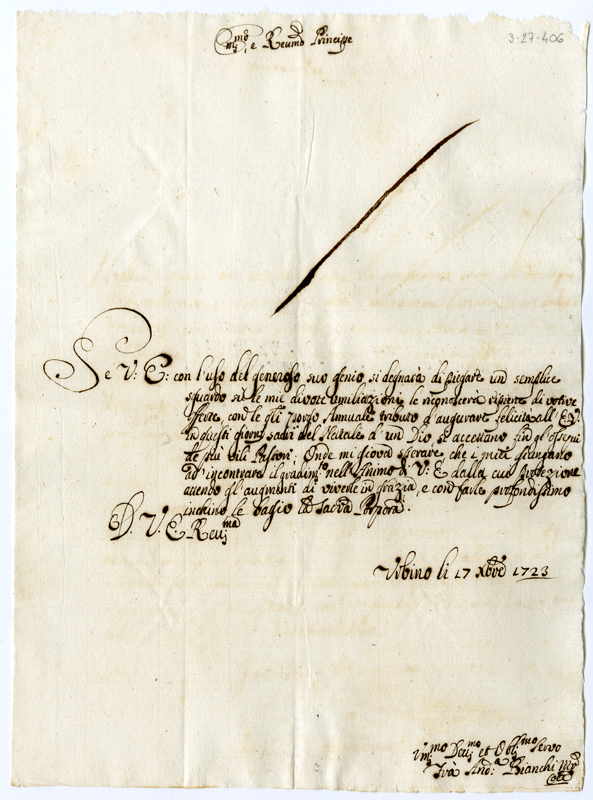 Em.mo e Reu.mo Principe
3-27-406
Se V: E: con l'uso del generoso suo genio, si degnarà di piegare un semplice
sguardo sù le mie divote umiliazioni le riconoscerà ripiene di votive
offerte, con le gli porgo Annuale tributo d'augurare felicità all' E.V.
in questi giorni sacri del Natale d'un Dio si accettano fin gl'ossequi
de più vili Pastori. Onde mi giova sperare, che i miei giungano
ad incontrare il gradim.to nell'Animo di V: E dalla cui Protezione
auendo gl'augmenti di viverle in grazia, e con farle profondissimo
inchino le baggio la Sacra Porpora.
D. V. E Reu.ma
Vrbino li 17 Xbre 1723
Um.mo Deu.mo et Obl.mo Servo
Frà And.a Bianchi